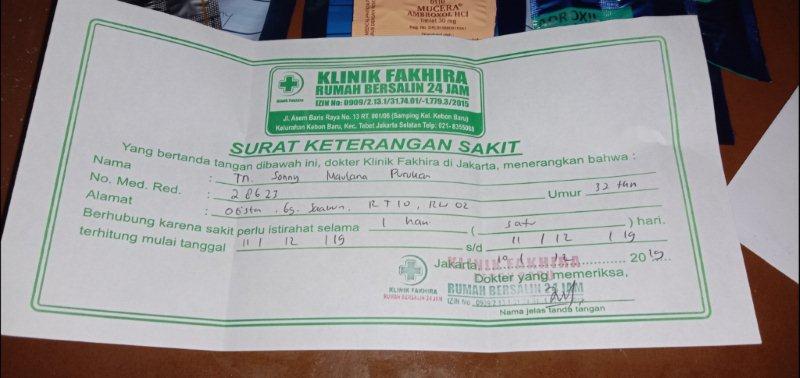 MUCERA®
AMBROXOL HCl
Tablet 30 mg
KLINIK FAKHIRA
RUMAH BERSALIN 24 JAM
IZIN No: 0909/2.13.1/31.74.01/-1.779.3/2015
Klinik Fakhira
Jl. Asem Baris Raya No. 13 RT. 001/06 (Samping Kel. Kebon Baru)
Kelurahan Kebon Baru, Kec. Tebet Jakarta Selatan Telp: 021- 8355068
SURAT KETERANGAN SAKIT
Yang bertanda tangan dibawah ini, dokter Klinik Fakhira di Jakarta, menerangkan bahwa :
Nama : Tn. Sonny Maulana Purukan
No. Med. Red. : 28623 Umur 32 thn
Alamat : RT 10, RW 02
Berhubung karena sakit perlu istirahat selama 1 hari ( satu ) hari.
terhitung mulai tanggal 11 / 12 / 19 s/d 11 / 12 / 19
Jakarta, 2019
KLINIK FAKHIRA
Dokter yang memeriksa,
KLINIK FAKHIRA
RUMAH BERSALIN 24 JAM
RUMAH BERSALIN 24 JAM
IZIN No
Nama jelas tanda tangan